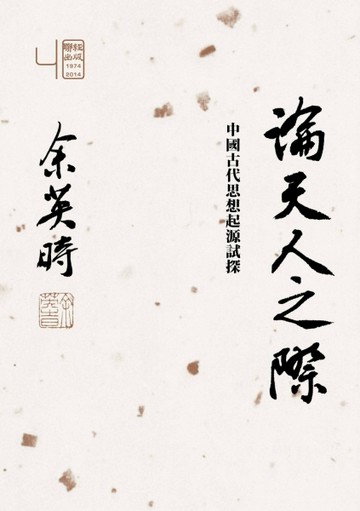 論天人之際
中國古代思想起源試探
余英時
聯經
出版
1974
2014